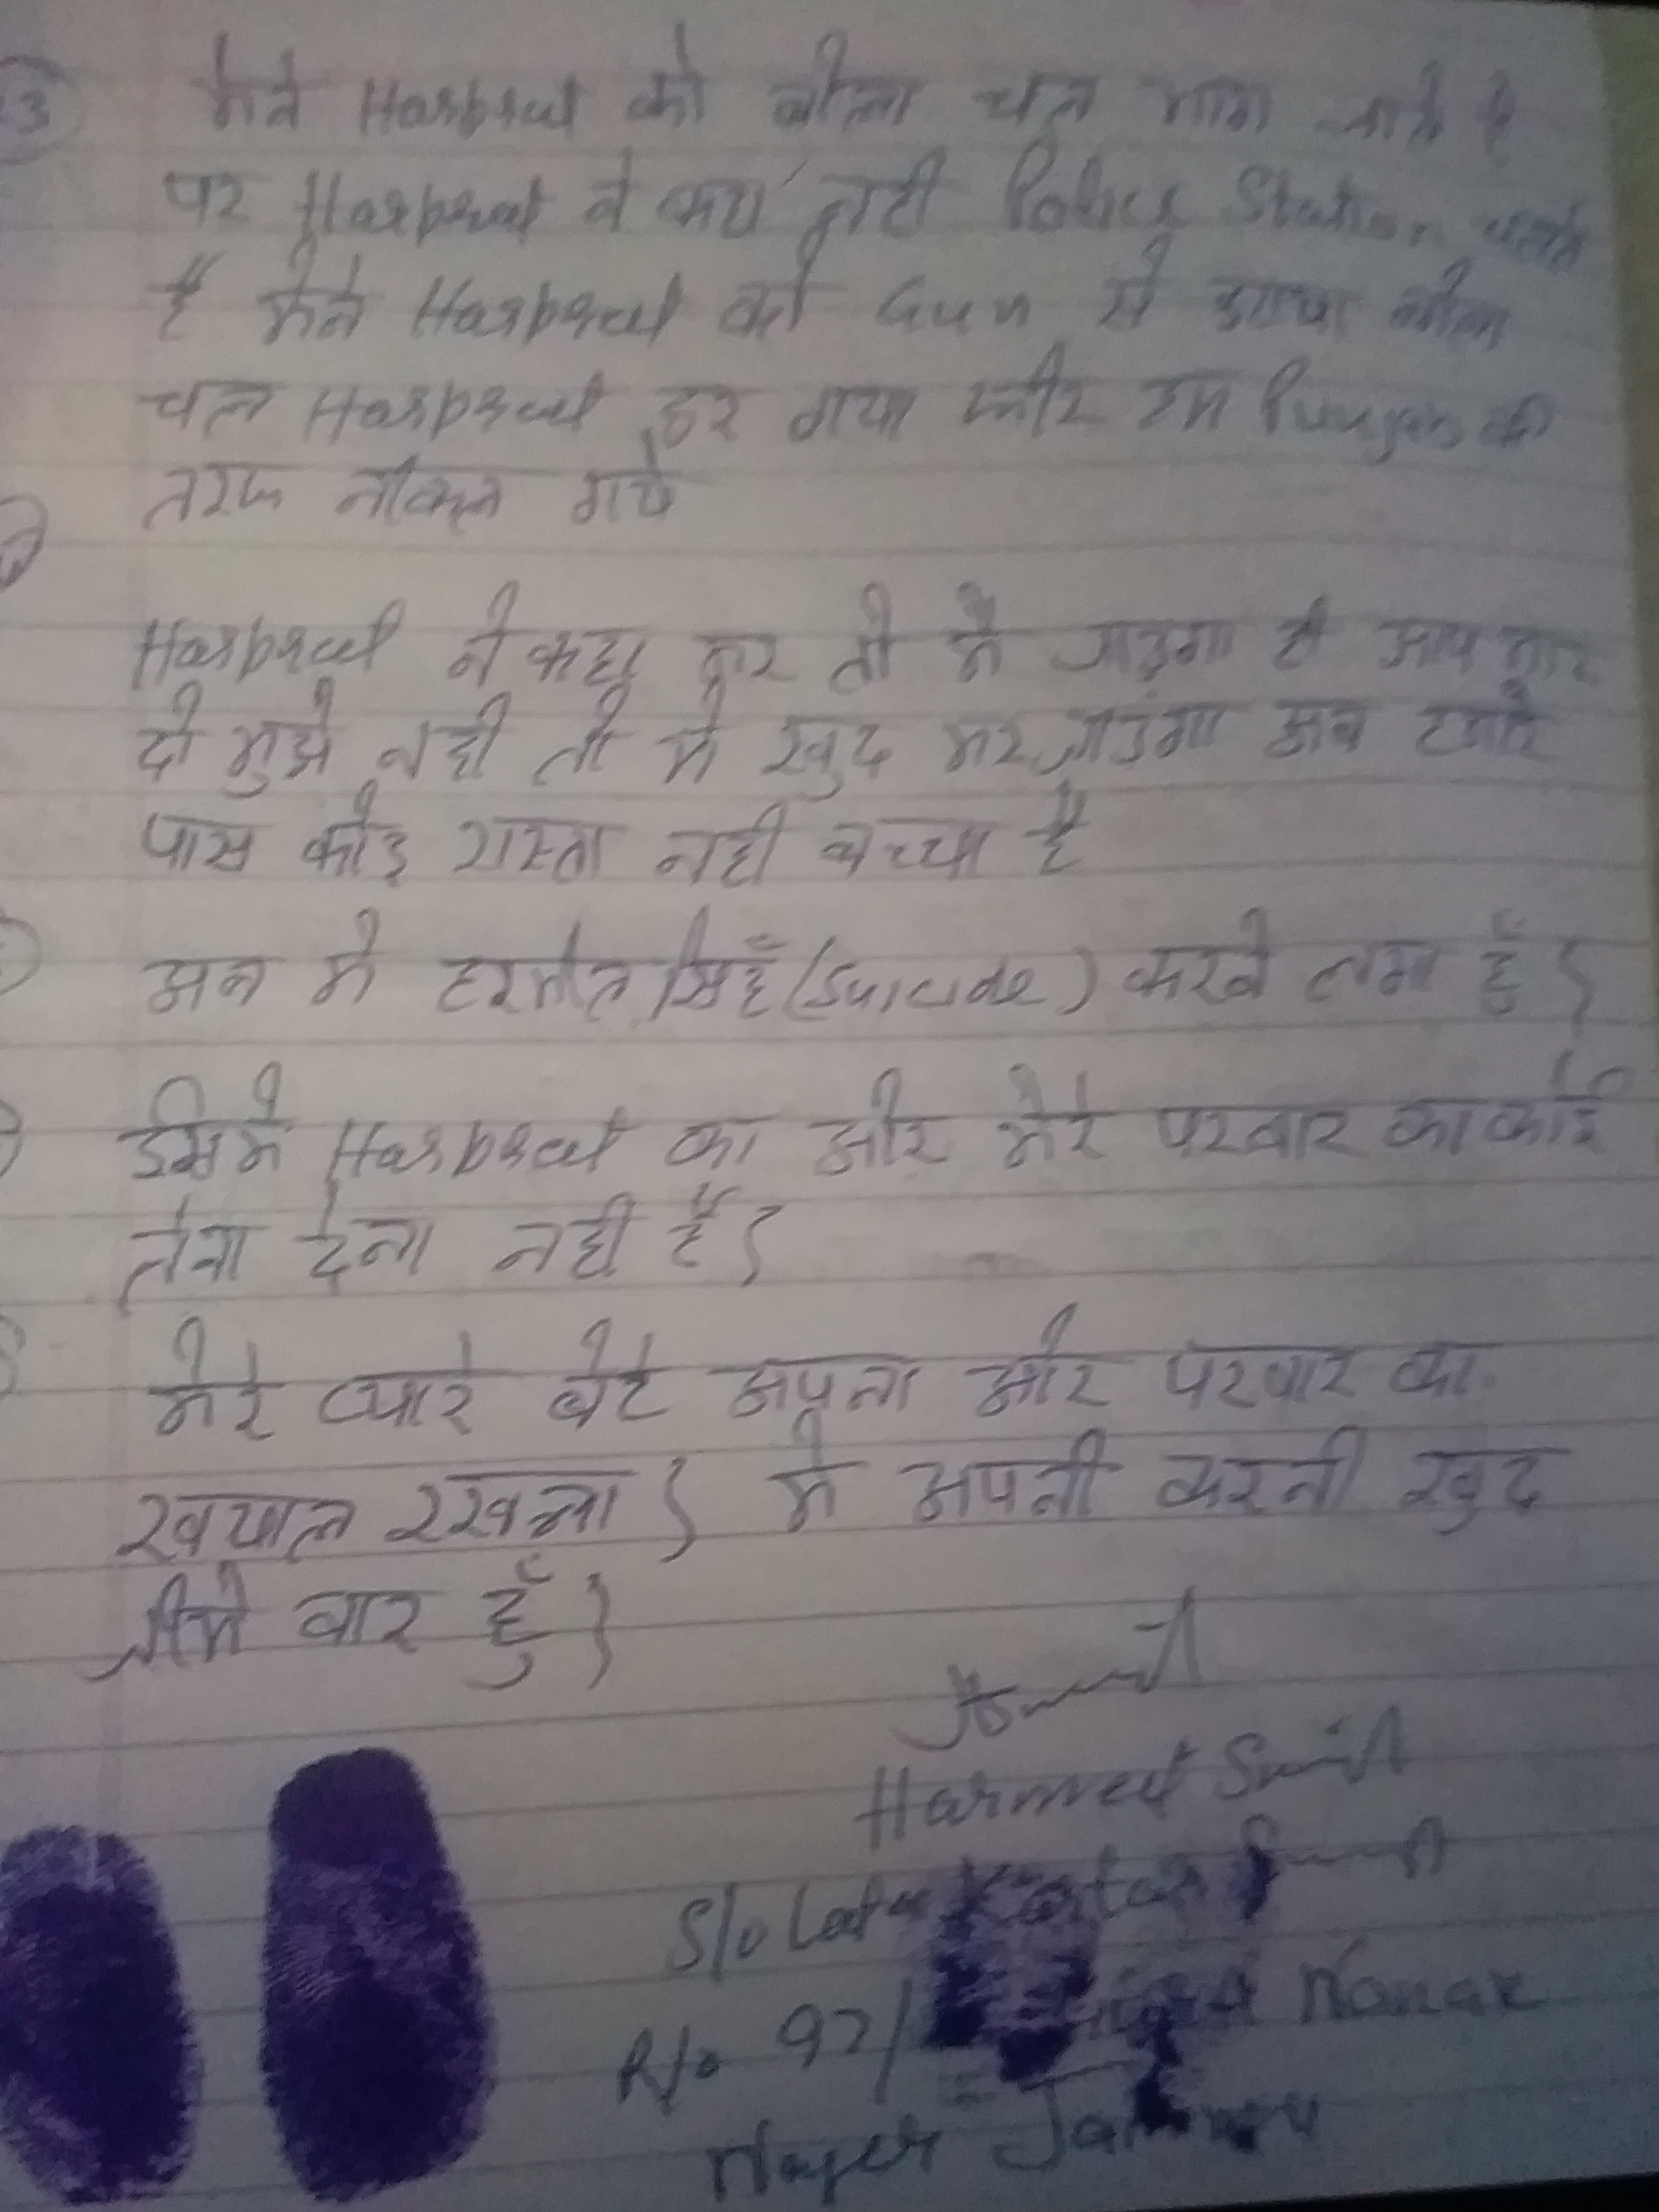 3 मैने Harpreet को बोला चल भाग जाते है
पर Harpreet ने कहा नही Police Station चलते
है मैने Harpreet को Gun से डराया बोला
चल Harpreet डर गया और हम Punjab की
तरफ नीकल गये
Harpreet ने कहा मर तो मै जाउगा ही आप मार
दो मुझे नही तो मे खुद मर जाउंगा अब हमारे
पास कोइ रास्ता नही बच्चा है
अब मे हरमीत सिहँ (Suicide) करने लगा हुँ
इसमे Harpreet का और मेरे परवार का कोई
लेना देना नही है
मेरे प्यारे बेटे अपना और परवार का
खयाल रखना मे अपनी करनी खुद
जीमे वार हुँ
Harmeet Singh
S/o Late Kartar Singh
R/o 97/ Nanak
Nager Jammu